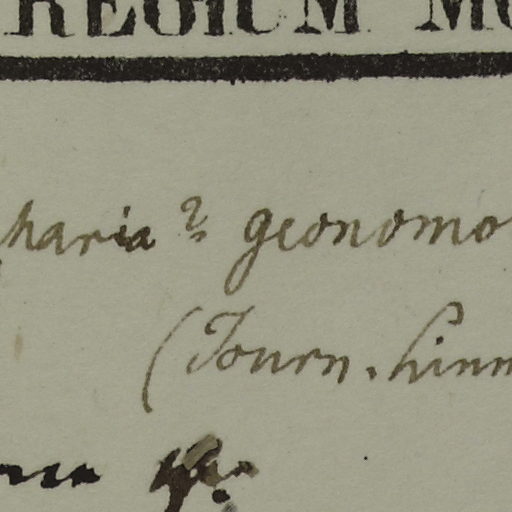 REGIUM MO
haria? geonomo
(Tourn. Linn